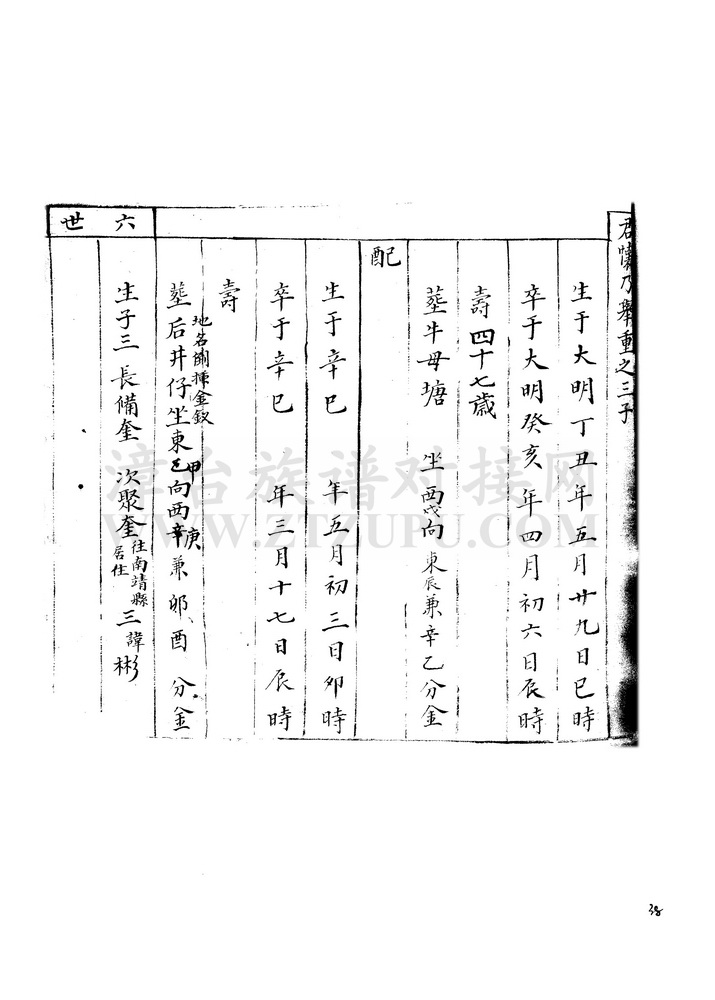 君懷乃舉重之三子
生于大明丁丑年五月廿九日巳時
卒于大明癸亥年四月初六日辰時
壽四十七歲
塟牛母塘 坐西戌向東辰兼辛乙分金
配
生于辛巳 年五月初三日夘時
卒于辛巳 年三月十七日辰時
壽
地名 金釵
塟后井仔坐東甲向西庚兼卯酉 分金
六世
生子三 長備奎 次聚奎往南靖縣居住 三諱彬
漳台族谱对接网
WWW.ZTZUPU.COM
38